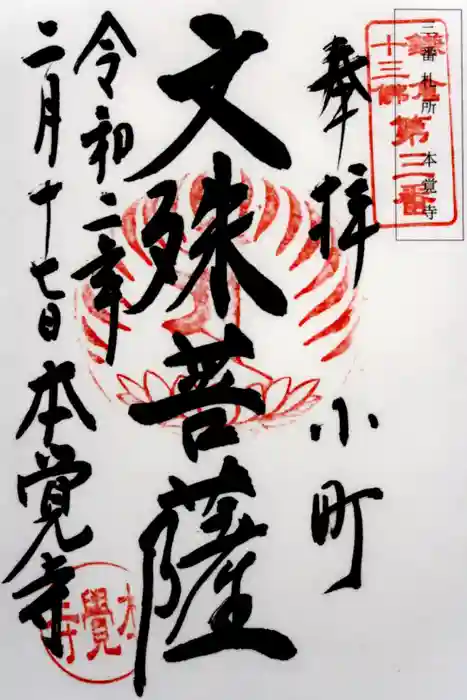 三番札所　本覚寺
鎌倉
十三佛第三番
奉拝　小町
文殊菩薩
令和二年
二月十七日　本覚寺
本覺寺